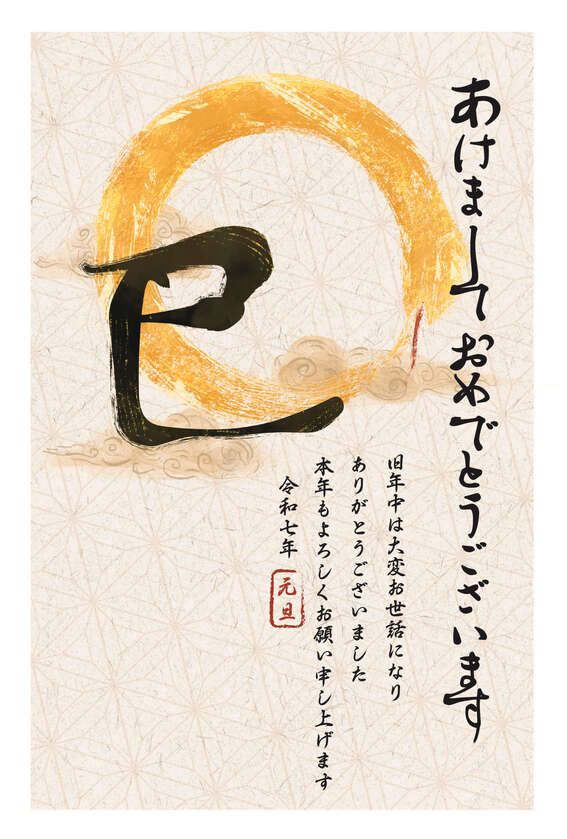 あけましておめでとうございます
旧年中は大変お世話になり
ありがとうございました
本年もよろしくお願い申し上げます
令和七年
元旦
巳